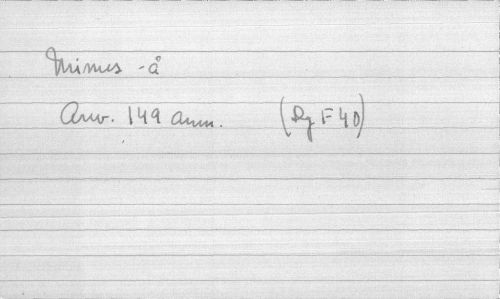 Minus -å
Arw. 149 anm. (Rg F 40)